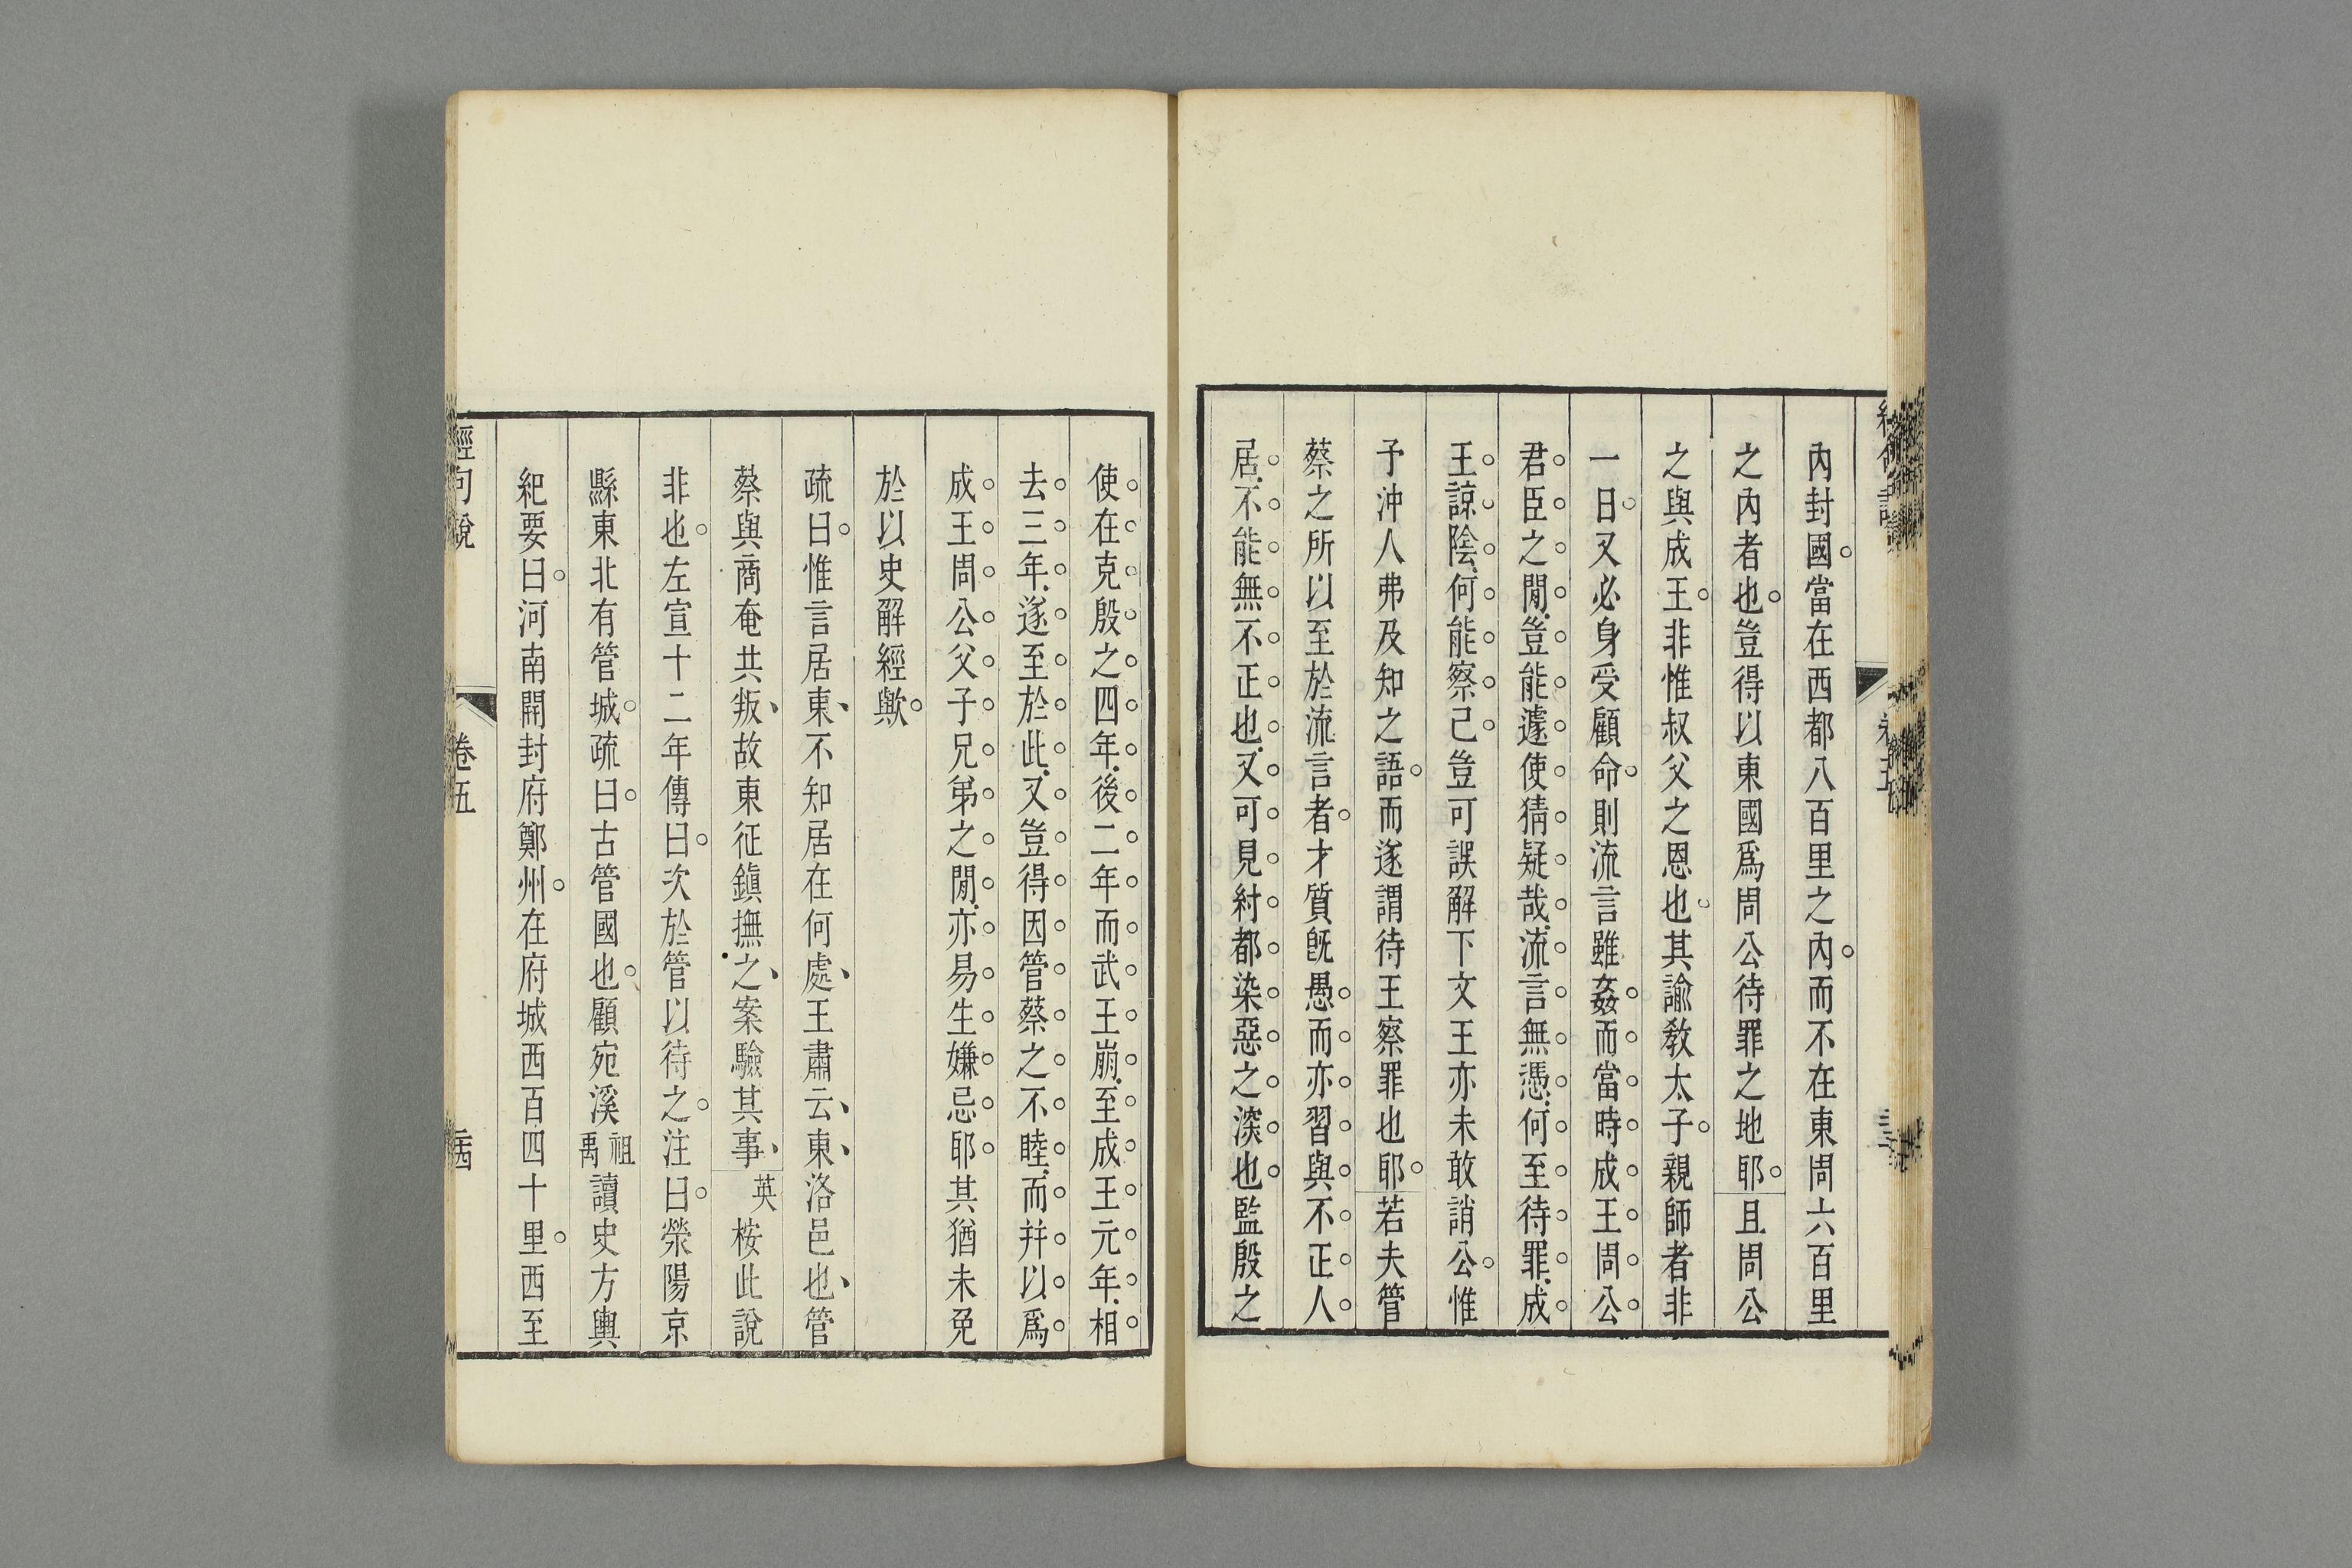 內封國當在西都八百里之內而不在東周六百里
之內者也豈得以東國爲周公待罪之地耶且周公
之與成王非惟叔父之恩也其諭敎太子親師者非
一日又必身受顧命則流言雖姦而當時成王周公
君臣之閒豈能遽使猜疑哉流言無憑何至待罪成
王諒陰何能察己豈可誤解下文王亦未敢誚公惟
予沖人弗及知之語而遂謂待王察罪也耶若夫管
蔡之所以至於流言者才質旣愚而亦習與不正人
居不能無不正也又可見紂都染惡之深也監殷之
使在克殷之四年後二年而武王崩至成王元年相
去三年遂至於此又豈得因管蔡之不睦而幷以爲
成王周公父子兄弟之閒亦易生嫌忌耶其猶未免
於以史解經歟
疏曰惟言居東不知居在何處王肅云東洛邑也管
蔡與商奄共叛故東征鎭撫之案驗其事英桉此說
非也左宣十二年傳曰次於管以待之注曰滎陽京
縣東北有管城疏曰古管國也顧宛溪祖禹讀史方輿
紀要曰河南開封府鄭州在府城西百四十里西至
經句說 卷五